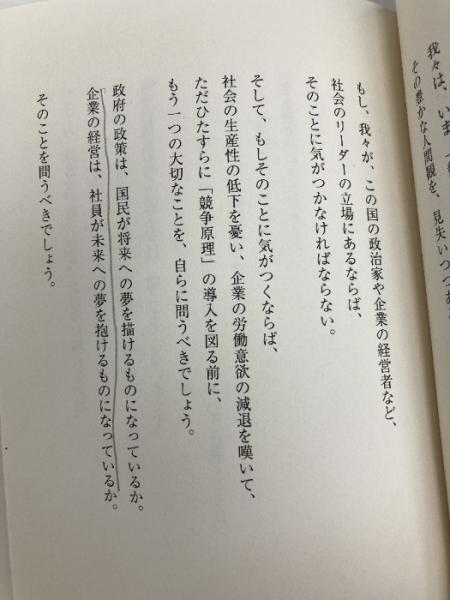 我々は、いま、
その豊かな人間観を、見失いつつあ
もし、我々が、この国の政治家や企業の経営者など、
社会のリーダーの立場にあるならば、
そのことに気がつかなければならない。
そして、もしそのことに気がつくならば、
社会の生産性の低下を憂い、企業の労働意欲の減退を嘆いて、
ただひたすらに「競争原理」の導入を図る前に、
もう一つの大切なことを、自らに問うべきでしょう。
政府の政策は、国民が将来への夢を描けるものになっているか。
企業の経営は、社員が未来への夢を抱けるものになっているか。
そのことを問うべきでしょう。